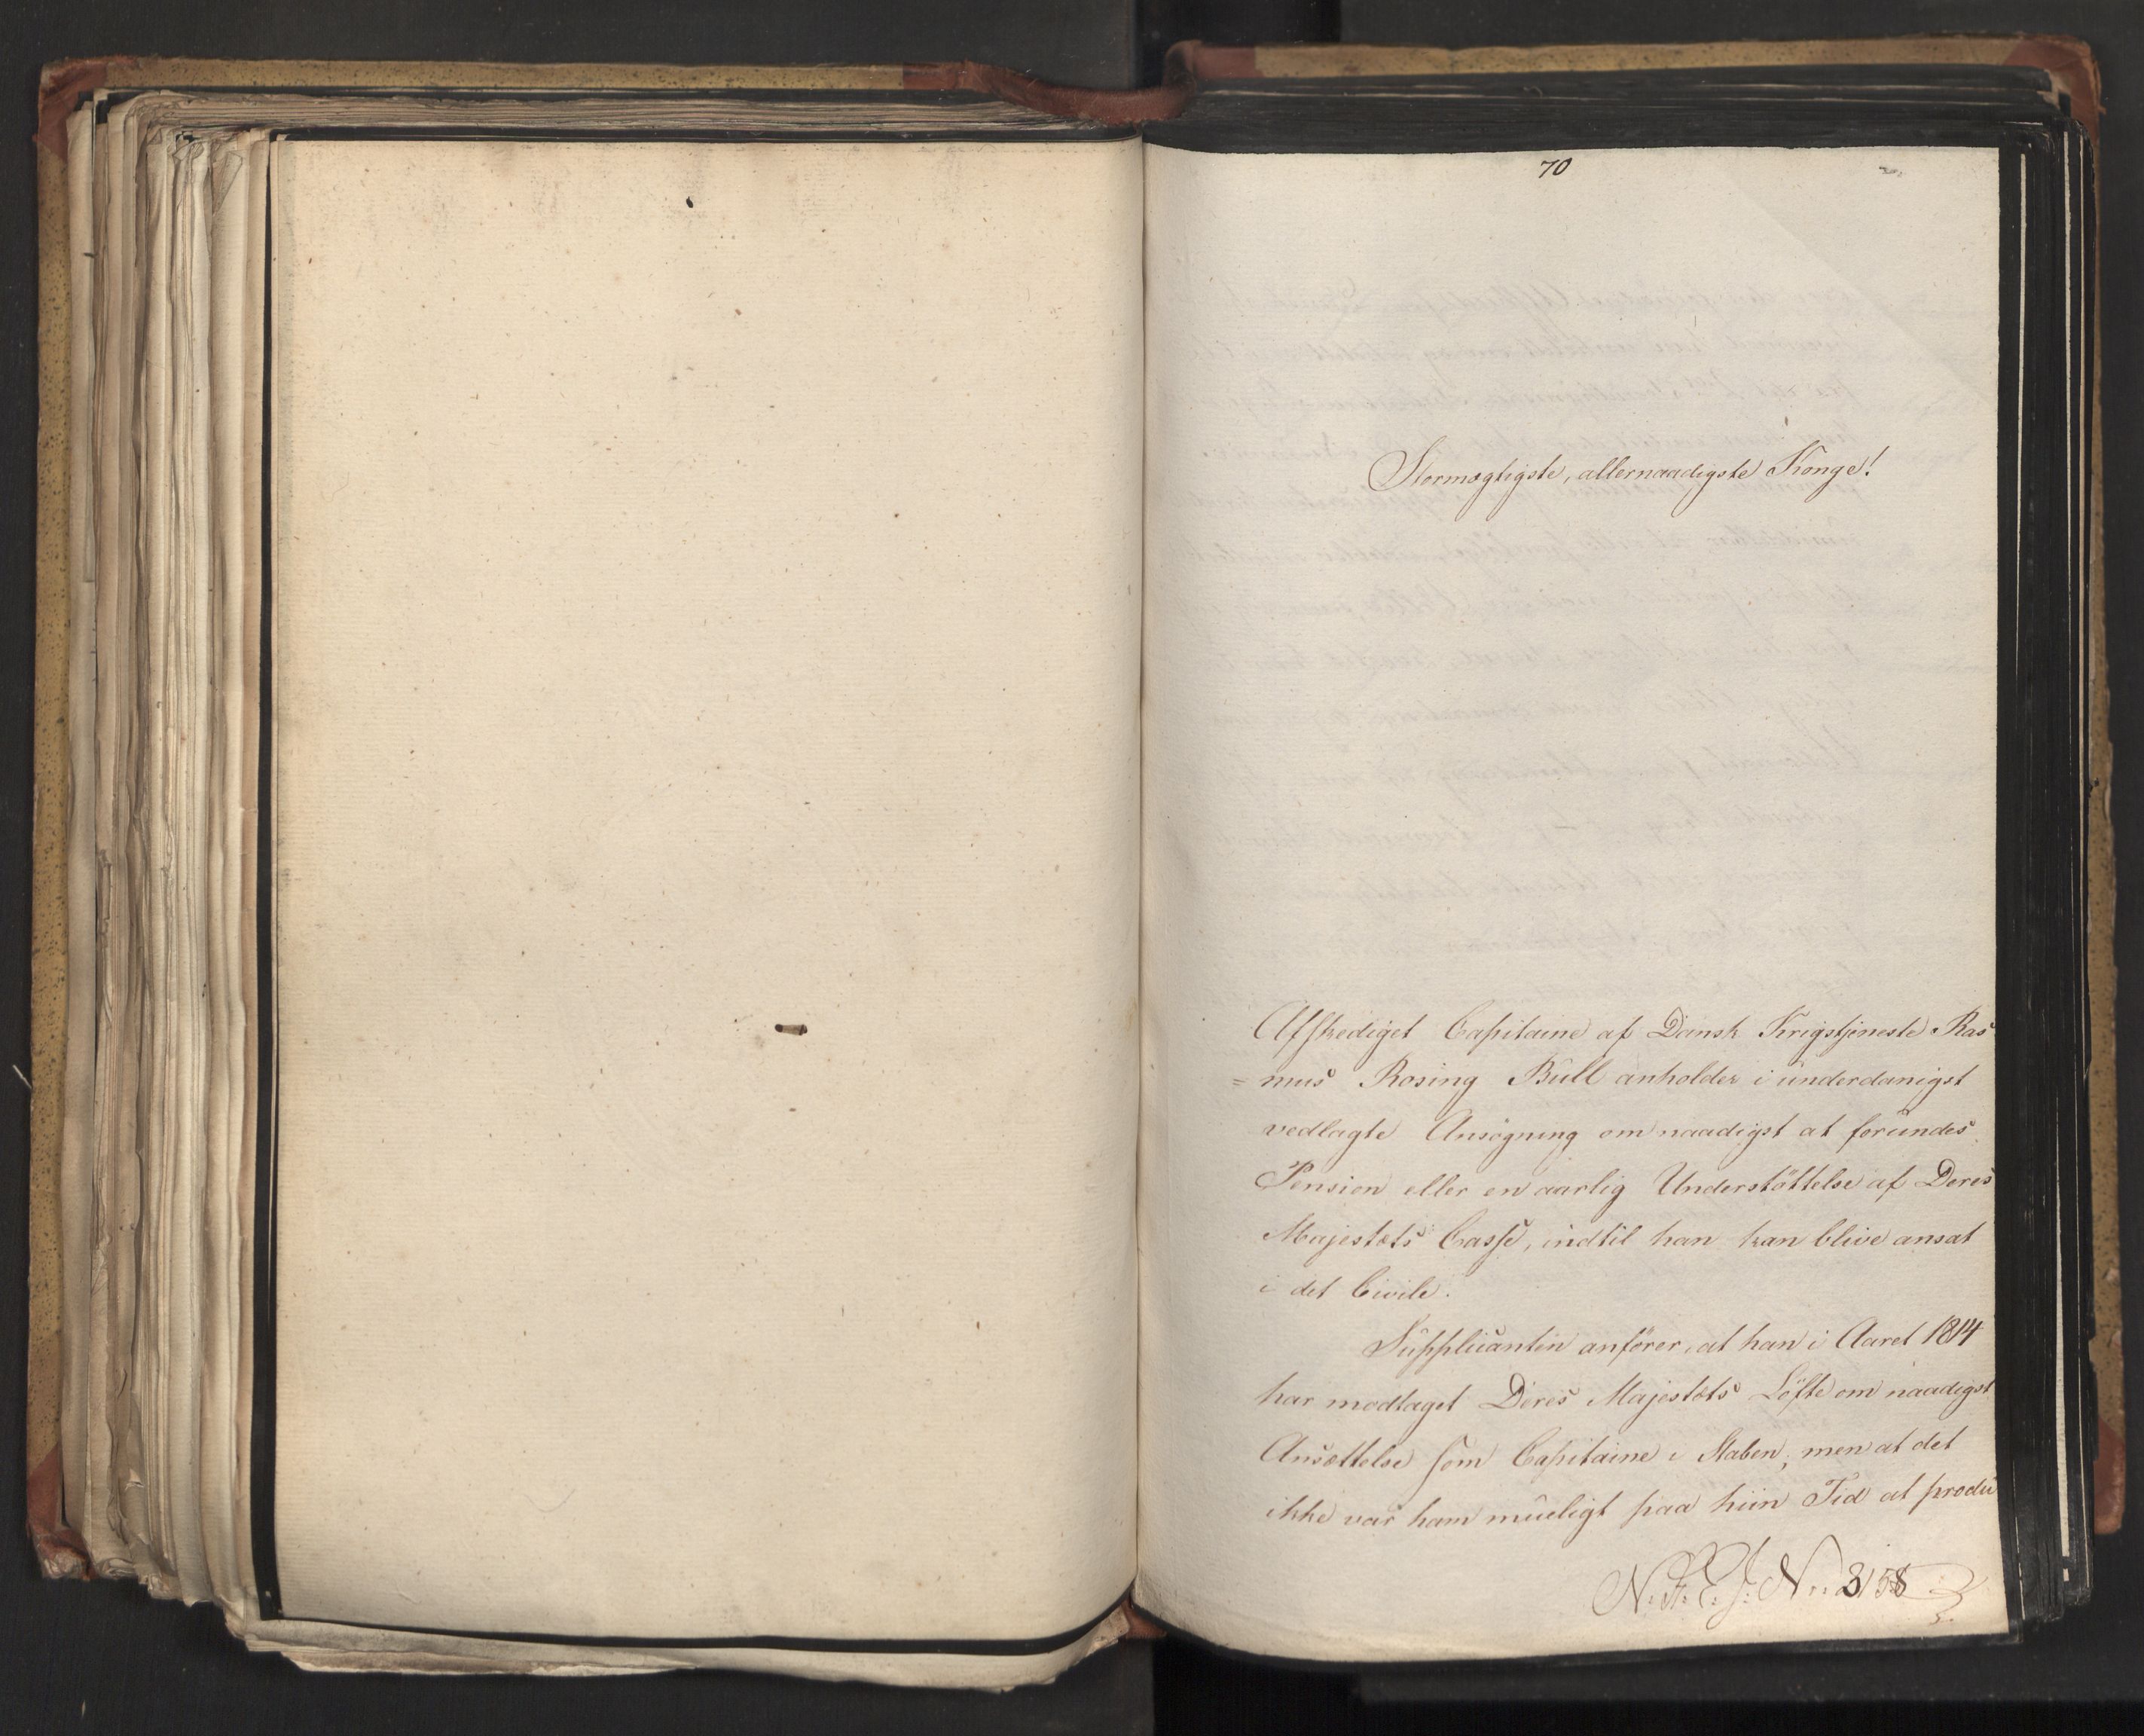 70
Stormægtigste, allernaadigste Konge!
Afskediget Capitaine af Dansk Krigstjeneste Ras
= mus Rosing Bull anholder i underdanigst
vedlagte Ansøgning om naadigst at forundes
Pension eller en aarlig Understøttelse af Deres
Majestæts Casse, indtil han kan blive ansat
i det Civile.
Supplicanten anfører, at han i Aaret 1814
har modtaget Deres Majestæts Løfte om naadigst
Ansættelse som Capitaine i Staben, men at det
ikke var ham mueligt paa hiin Tid at produ
N: 3158